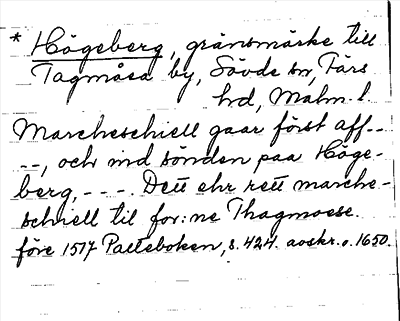 * Högeberg, gränsmärke till
Tagmåsa by, Sövde sn, Färs
hd, Malm. l.
Marcheschiell gaar först aff --
--, och ind sönden paa Höge-
berg, - - -. Dett ehr rett marche-
schiell til for:ne Thagmoese.
före 1517 Palteboken, s. 424. avskr. o. 1650.